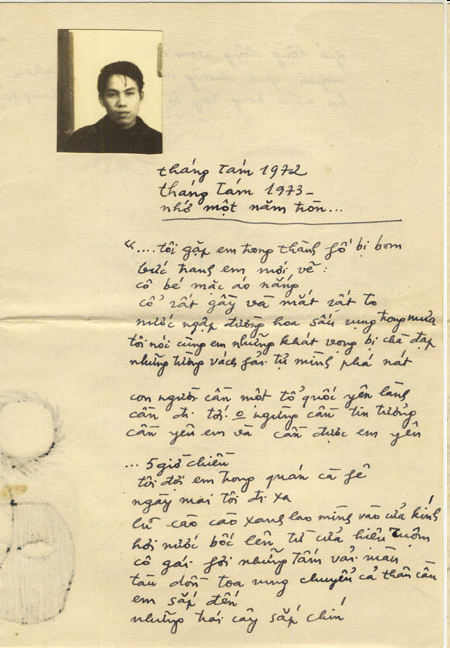 tháng tám 1972
tháng tám 1973 –
nhớ một năm tròn...
"....tôi gặp em trong thành fố bị bom
bức tranh em mới vẽ:
cô bé mặc áo nắng
cổ rất gầy và mắt rất to
nước ngập đường hoa sấu rụng trong mưa
tôi nói cùng em những khát vọng bị chà đạp
những tường vách fải tự mình phá nát
con người cần một tổ quốc yên lành
cần đi tới o ngừng cần tin tưởng
cần yêu em và cần được em yêu
... 5 giờ chiều
tôi đợi em trong quán cà fê
ngày mai tôi đi xa
lũ cào cào xanh lao mình vào cửa kính
hơi nước bốc lên từ cửa hiệu nhuộm
cô gái fơi những tấm vải màu
tàu dồn toa rung chuyển cả thân cầu
em sắp đến
những trái cây sắp chín